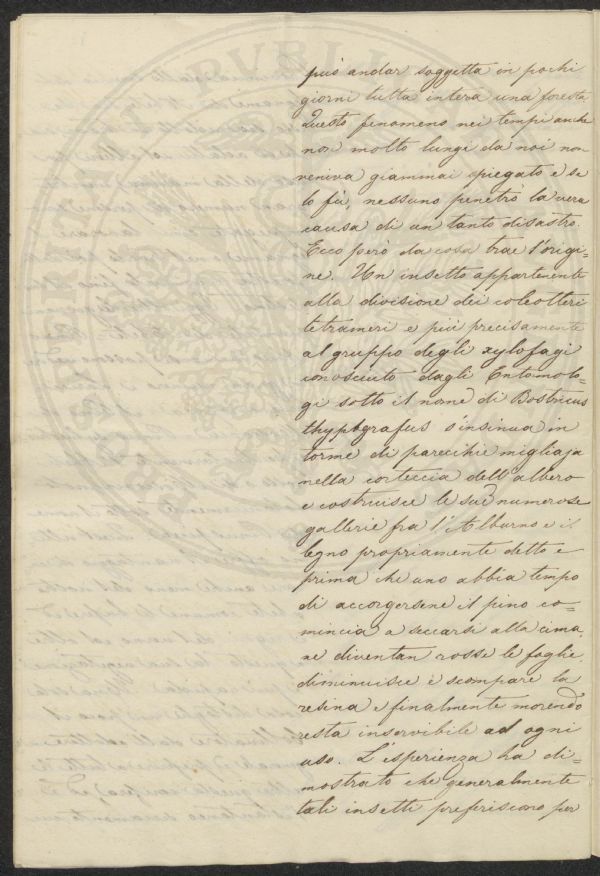 può andar soggetta in pochi
giorni tutta intera una foresta
Questo fenomeno nei tempi anche
non molto lungi da noi non
veniva giammai spiegato e se
lo fù, nessuno penetrò la vera
causa di un tanto disastro.
Ecco però da cosa trae l'origi=
ne. Un insetto appartenente
alla divisione dei coleotteri
tetrameri e più precisamente
al gruppo degli xylofagi
conosciuto dagli Entomolo=
gi sotto il nome di Bostricus
thypografus s'insinua in
torme di parecchie migliaja
nella corteccia dell'albero
e costruisce le sue numerose
gallerie fra l'Alburno e il
legno propriamente detto e
prima che uno abbia tempo
di accorgersene il pino co=
mincia a seccarsi alla cima,
ne diventan rosse le foglie,
diminuisce e scompare la
resina e finalmente morendo
resta inservibile ad ogni
uso. L'esperienza ha di=
mostrato che generalmente
tali insetti preferiscono per